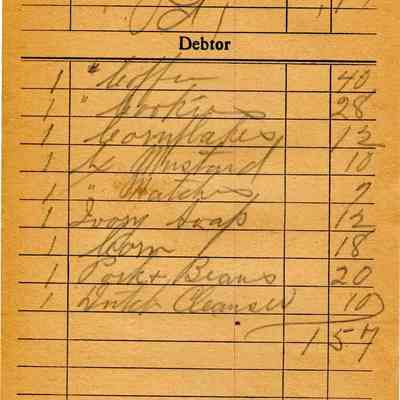 Debtor
1 " Coffee 40
1 " Cookies 28
1 Cornflakes 12
1 Mustard 10
1 " Matches 7
1 Ivory Soap 12
1 Corn 18
1 Pork + Beans 20
1 Dutch Cleanser 10
1 57